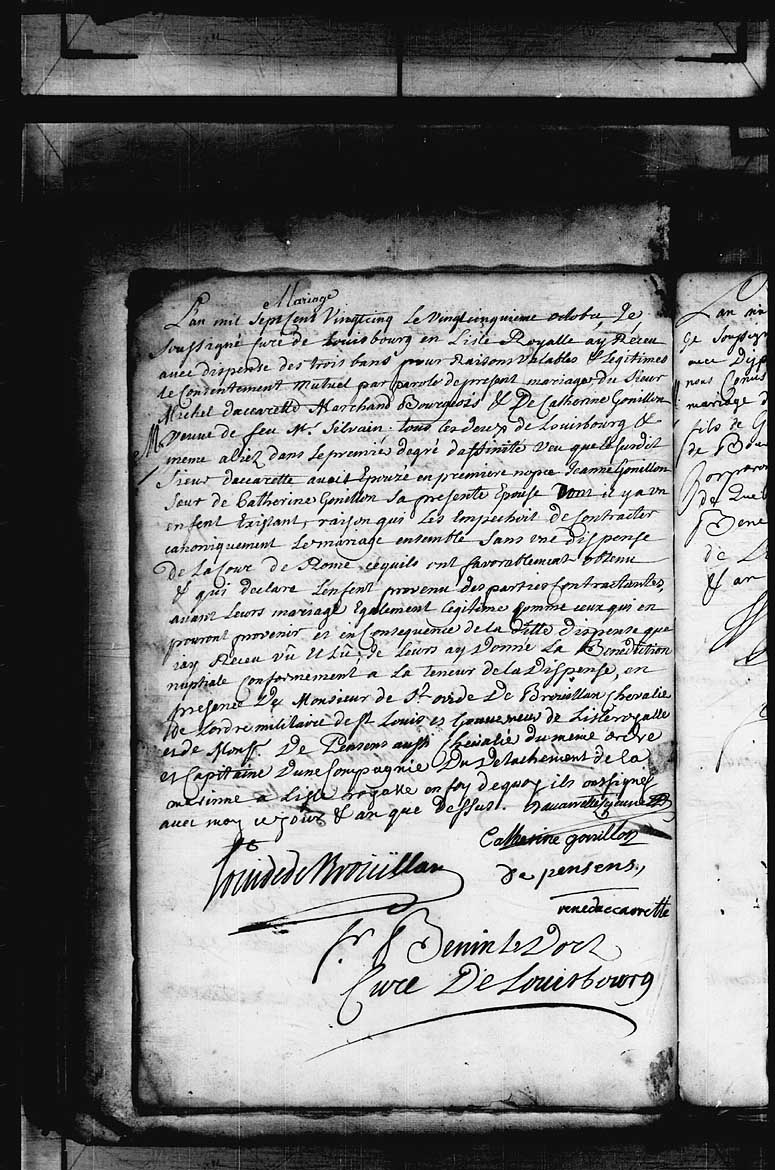 Mariage
L'an mil Sept Cent Vingtcinq le Vingtcinquieme octobre Je
Soussigné Curé de Louisbourg en Lisle Royalle ay Receu
avec dispense des trois bans pour Raisons Valables & legitimes
le Consentement mutuel par parole de present mariage du Sieur
Michel daccarette Marchand Bourgeois & De Catherine Gonillon
Veuve de feu Mr. Silvain tous les deux de Louisbourg &
meme aliez dans le premier degré daffinité Veu que le Surdit
Sieur daccarette avoit Epouzé en premiere nopce Jeanne Gonillon
Seur de Catherine Gonillon Sa presente Epouse Dont il y a un
enfent Existant, raison qui les Empechoit de Contracter
canoniquement le mariage ensemble Sans une dispense
de la Cour de Rome cequils ont favorablement obtenu
& qui declare lenfent provenu des parties Contractantes,
avant leurs mariage Egalement legitime Comme ceux qui en
pouront provenir et en Consequence de la ditte dispense que
jay Receu Vû et Lû, je Leurs ay Donné La Benediction
nuptiale Conformement a La teneur de la Dispense, en
presence De Monsieur de St ovide De Brouillan Chevalie
de Lordre militaire de St Louis et Gouverneur de Lisle royalle
et de Monsr. De Pensens aussi Chevalié du meme ordre
et Capitaine Dune Compagnie Du Detachement de la
marinne a Lisle royalle en foy dequoy ils ont signé
avec moy ce jour & an que dessus.
Catherine gonillon
St ovide de Brouillan
de pensens
rene daccarrette
fr. Benin le Dorz
Curé De Louisbourg
L'an mi
Je Soussign
avec Disp
nous
mariage d
fils de G
de
de Que
Bene
de L
& an